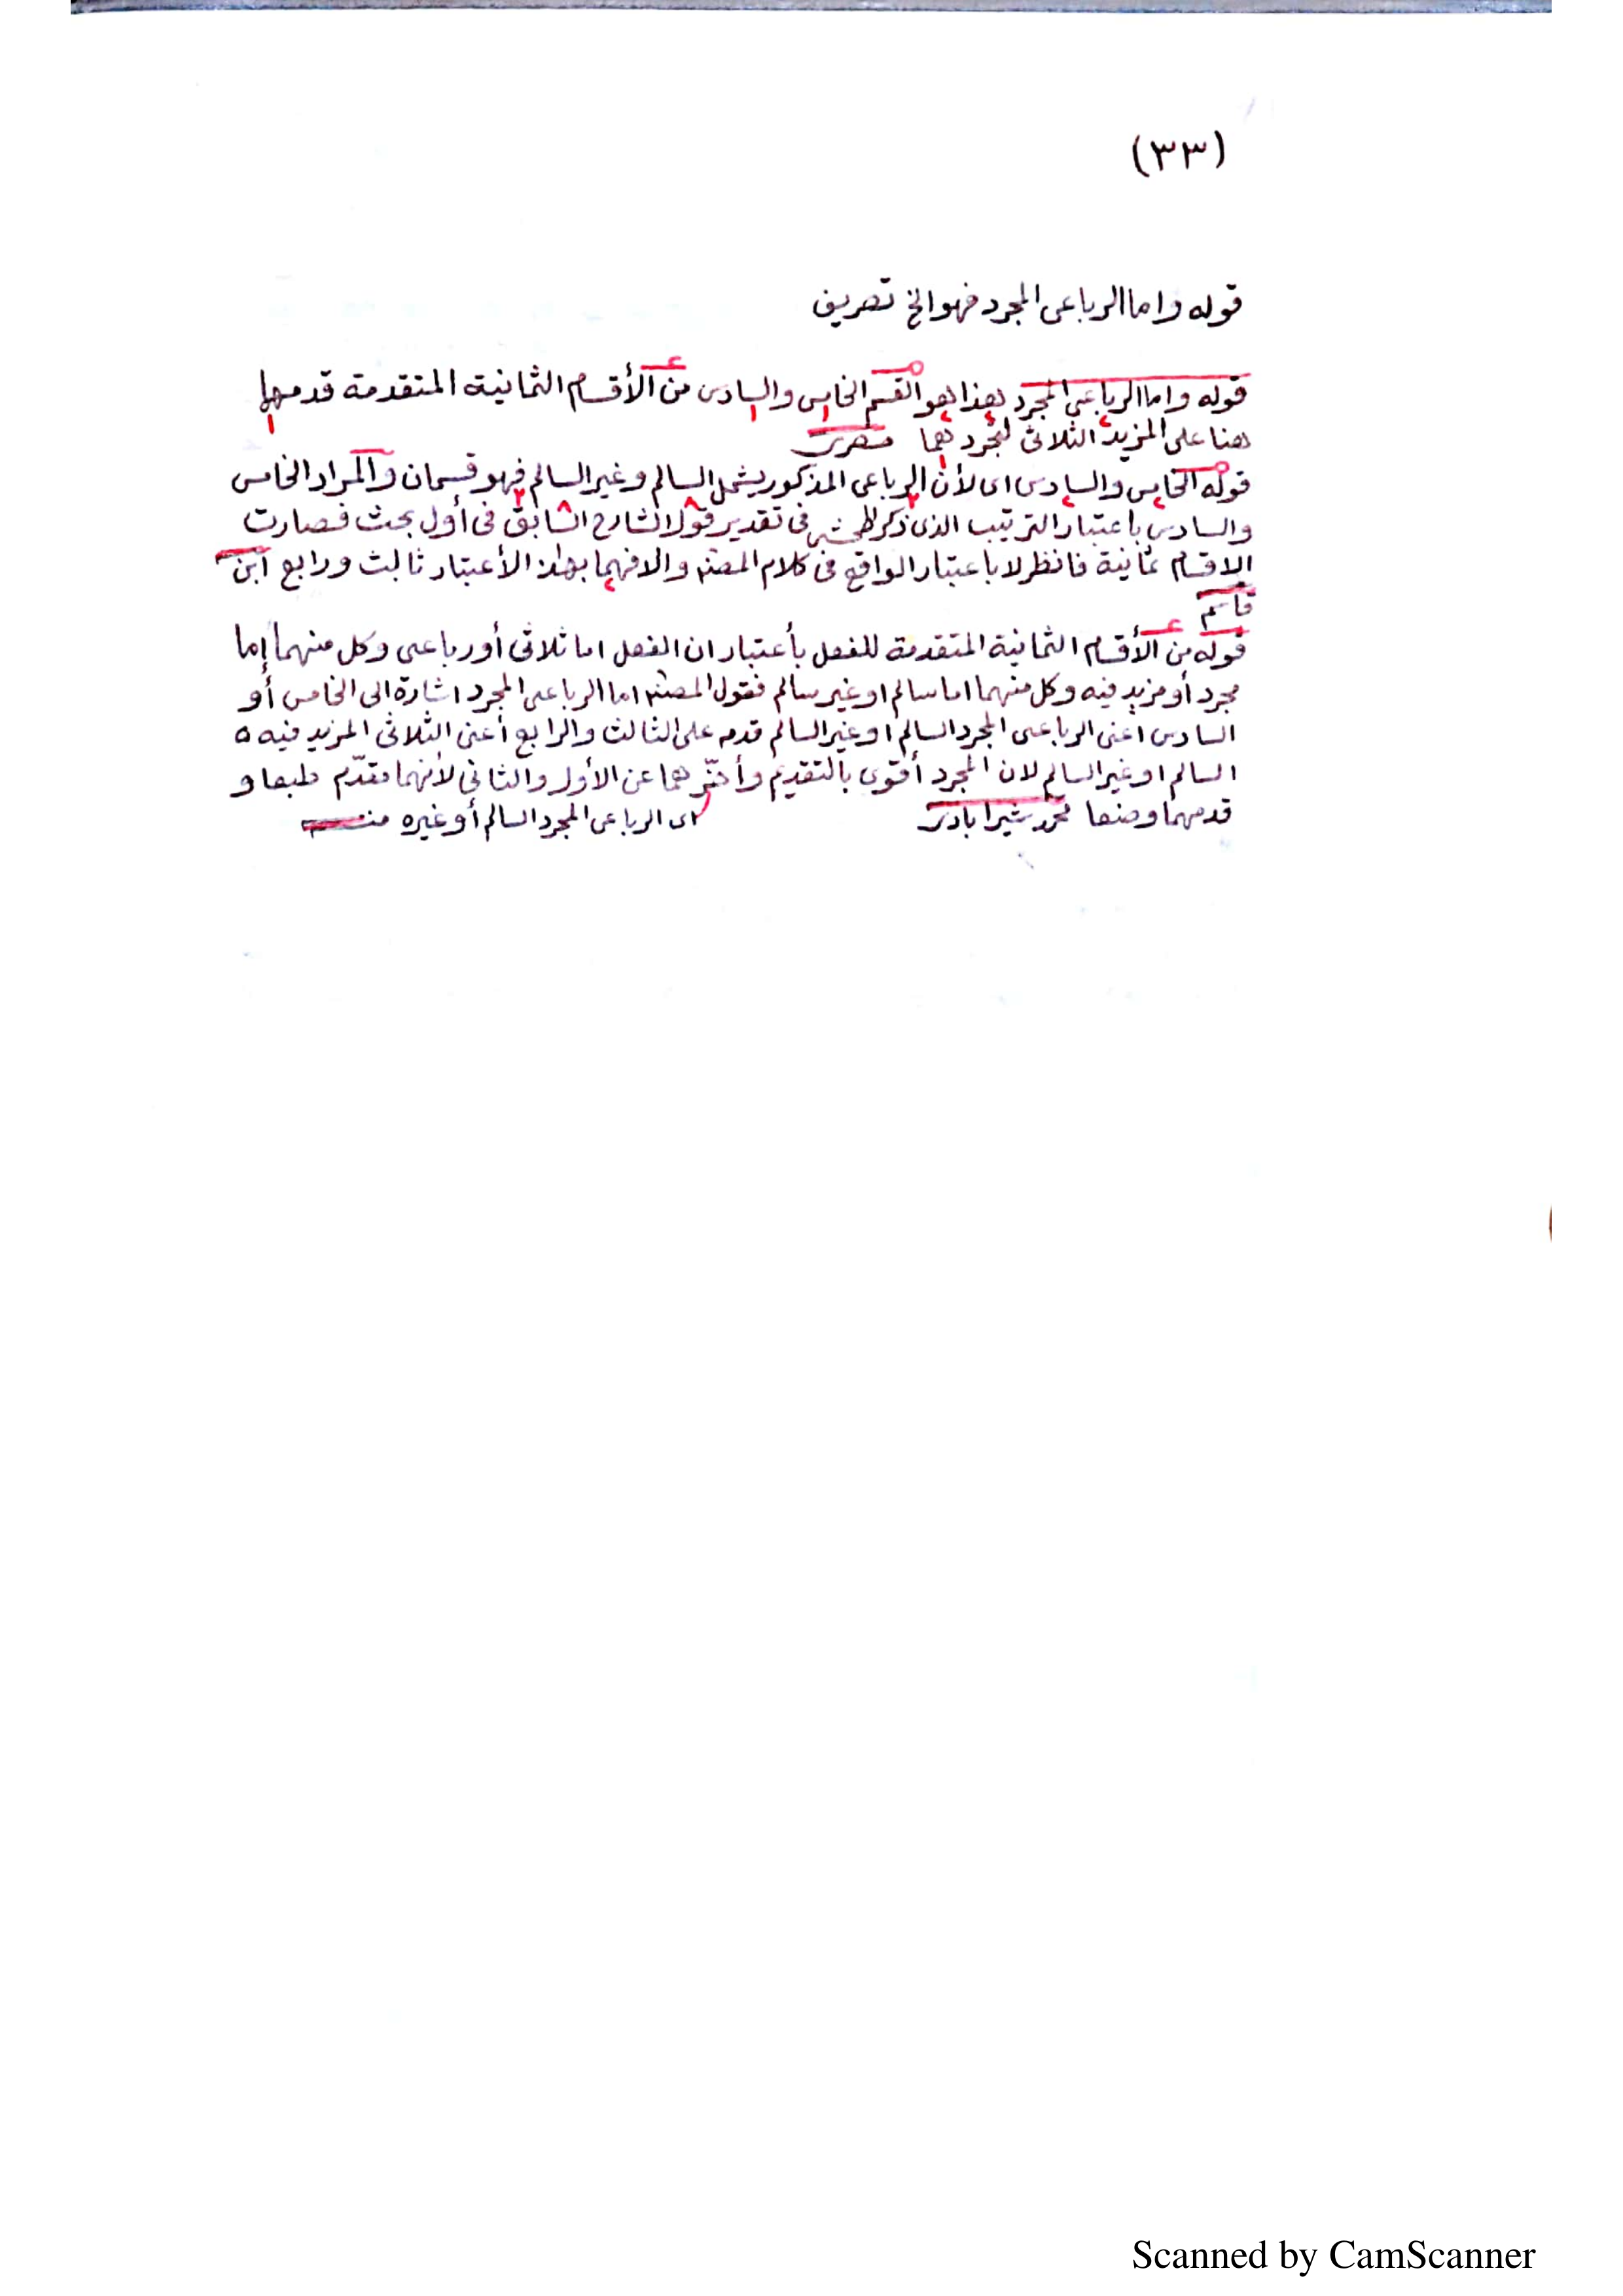 (٣٣)
قوله واما الرباعى المجرد فهو الخ تصريف
قوله واما الرباعى المجرد هذا هو القسم الخامس والسادس من الأقسام الثمانية المتقدمة قدمهما
هنا على المزيد الثلاثى لتجردهما
قوله الخامس والسادس اى لأن الرباعى المذكور يشمل السالم وغير السالم فهو قسمان والمراد الخامس
والسادس باعتبار الترتيب الذى ذكر فى تقدير قول الشارح السابق فى أول بحث فصارت
الاقسام ثمانية فانظر لا باعتبار الواقع فى كلام المصنف والا فهما بهذا الأعتبار ثالث ورابع ابن
قاسم
قوله من الأقسام الثمانية المتقدمة للفعل بأعتبار ان الفعل اما ثلاثى أو رباعى وكل منهما إما
مجرد أو مزيد فيه وكل منهما اما سالم او غير سالم فقول المصنف اما الرباعى المجرد اشارة الى الخامس أو
السادس اعنى الرباعى المجرد السالم او غير السالم قدمه على الثالث والرابع أعنى الثلاثى المزيد فيه
السالم او غير السالم لان المجرد أقوى بالتقديم وأخّرهما عن الأول والثانى لأنهما مقدّم طبعا و
قدمهما وضعا محمد شيرابادى
اى الرباعى المجرد السالم أو غيره منه
Scanned by CamScanner